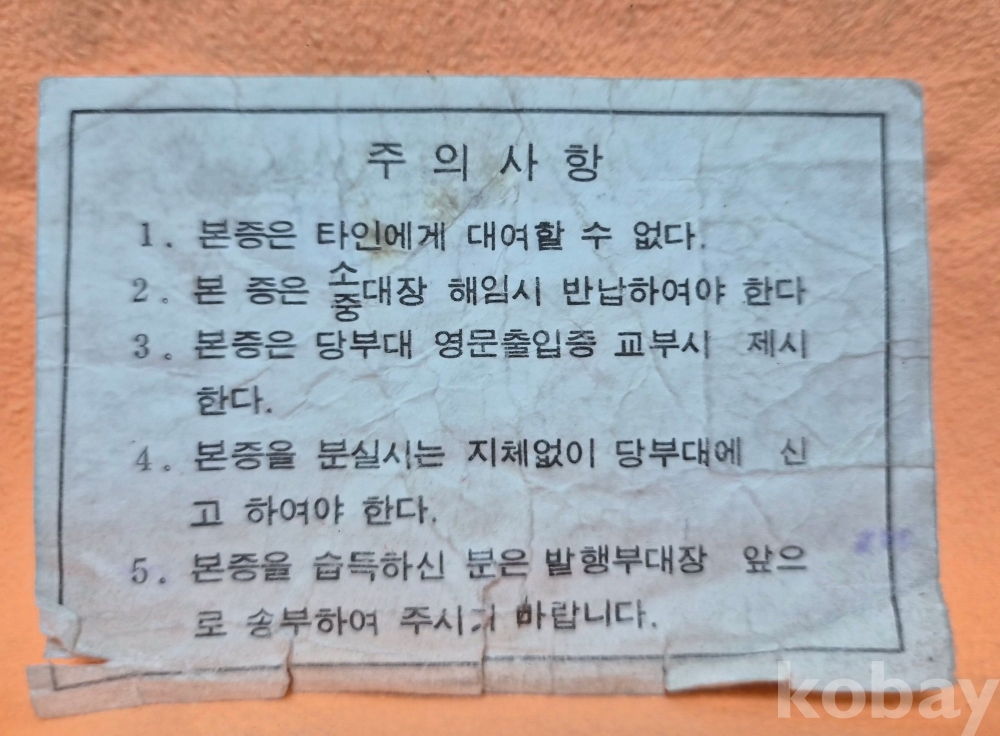 주 의 사 항
1. 본증은 타인에게 대여할 수 없다.
2. 본 증은 소중대장 해임시 반납하여야 한다
3. 본증은 당부대 영문출입증 교부시 제시
한다.
4. 본증을 분실시는 지체없이 당부대에 신
고 하여야 한다.
5. 본증을 습득하신 분은 발행부대장 앞으
로 송부하여 주시기 바랍니다.
kobay